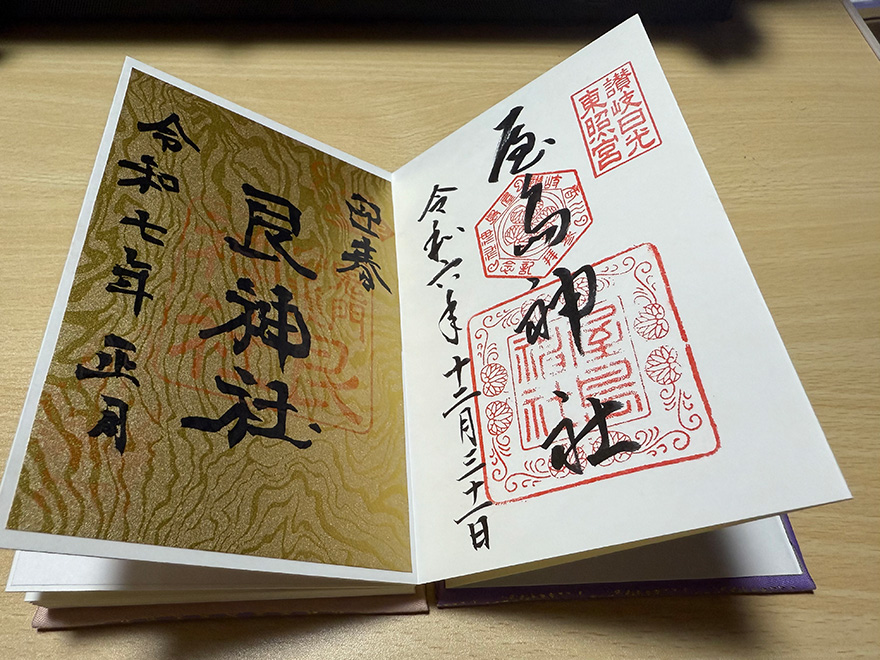 讃岐日光
東照宮
屋島神社
屋島
神社
令和六年十二月三十一日
迎春
艮神社
令和七年 正月